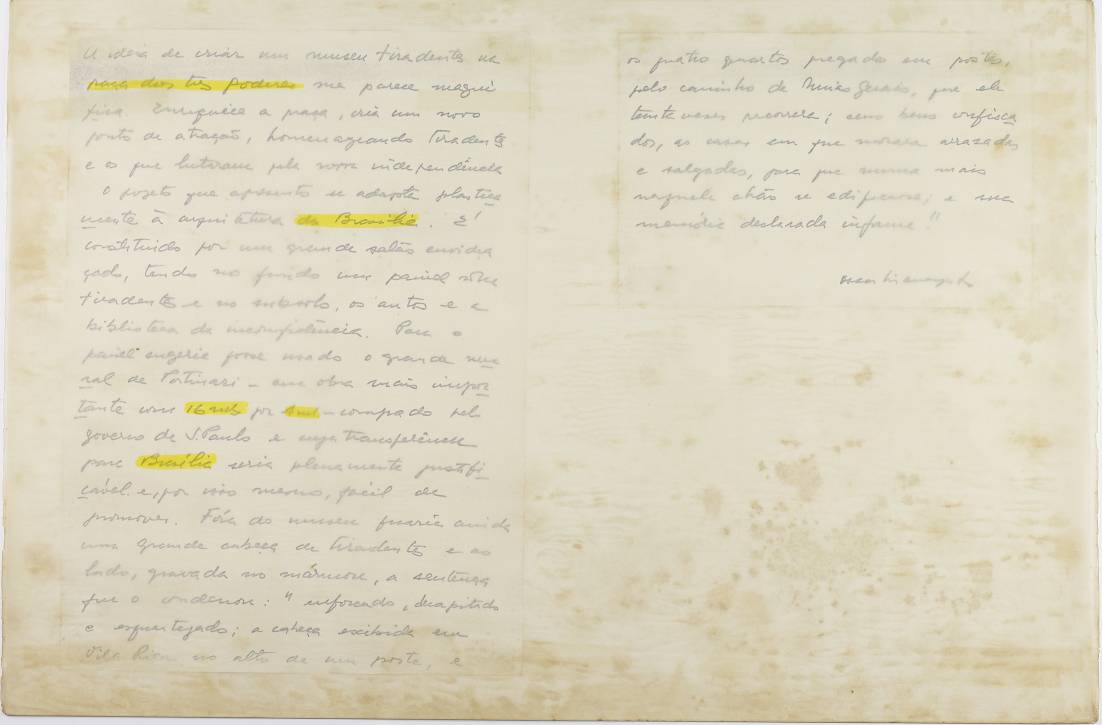 A ideia de criar um museu tiradentes na
praça dos tres poderes me parece magni
fica. Enriquéce a praça, cria um novo
ponto de atração, homenageando Tiradentes
e os que lutaram pela nossa independência
O projeto que apresento se adapta plastica
mente à arquitetura de Brasilia. E'
constituido por um grande salão envidra
çado, tendo no fundo um painel sôbre
tiradentes e no subsolo, os autos e a
biblioteca da inconfidência. Para o
painel sugeria fosse usado o grande mu
ral de Portinari – sua obra mais impor
tante com 16 mts por – comprado pelo
governo de S. Paulo e cuja transferência
para Brasilia seria plenamente justifi
cável e, por isso mesmo, fácil de
promover. Fóra do museu ficaria ainda
uma grande cabeça de tiradentes e ao
lado, gravada no mármore, a sentença
que o condenou: " enforcado, decapitado
e esquartejado; a cabeça exibida em
Vila Rica no alto de um poste, e
os quatro quartos pregados em postes,
pelo caminho de Minas Gerais, que ele
tantas vezes recorrera; seus bens confisca
dos, as casas em que morara arrasadas
e salgadas, para que nunca mais
naquele chão se edificasse; e sua
memória declarada infame!"